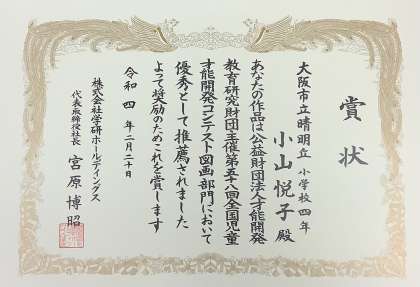 賞状
大阪市立晴明丘小学校四年
小山悦子殿
あなたの作品は公益財団法人才能開発
教育研究財団主催第五十八回全国児童
才能開発コンテスト図画部門において
優秀として推薦されました
よって奨励のためこれを賞します
令和四年二月二十日
株式会社学研ホールディングス
代表取締役社長 宮原博昭